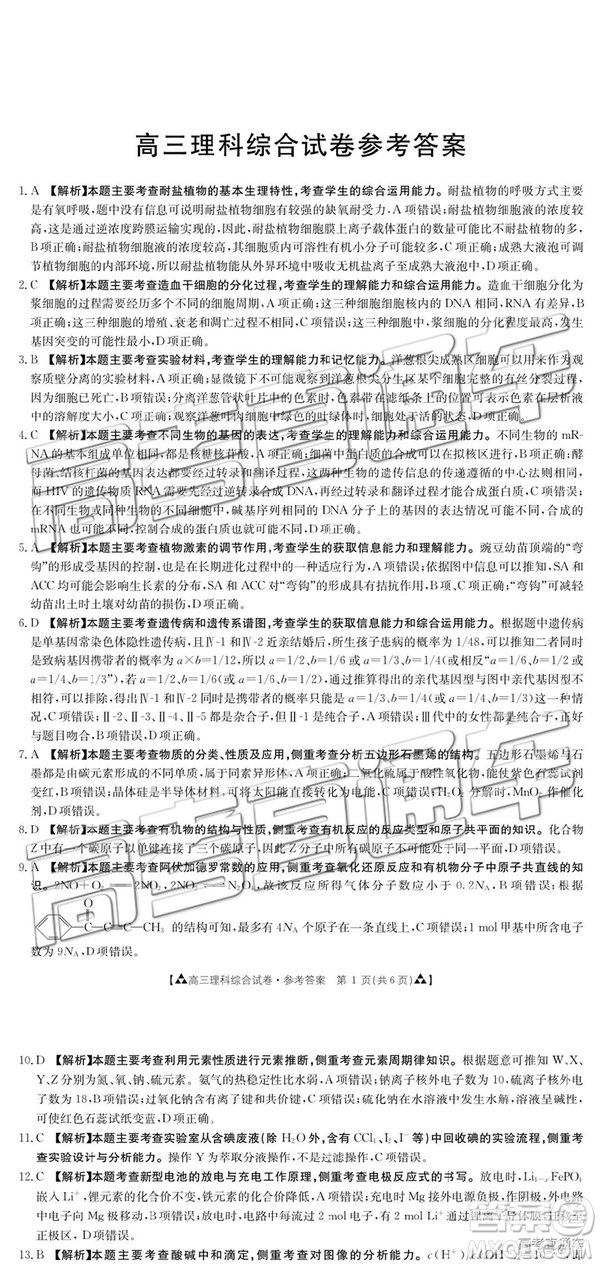 高三理科综合试卷参考答案
1. A 【解析】本题主要考查耐盐植物的基本生理特性,考查学生的综合运用能力。耐盐植物的呼吸方式主要
是有氧呼吸,题中没有信息可说明耐盐植物细胞有较强的缺氧耐受力,A项错误;耐盐植物细胞液的浓度较
高,这是通过逆浓度跨膜运输实现的,因此耐盐植物细胞膜上离子载体蛋白的数量可能比不耐盐植物的多,
B项正确;耐盐植物细胞液的浓度较高,细胞质内可溶性有机小分子可能较多,C项正确;成熟大液泡可调节
植物细胞的内部环境,所以耐盐植物能从外界环境中吸收无机盐离子至成熟大液泡中,D项正确。
2. C 【解析】本题主要考查造血干细胞的分化过程,考查学生的理解能力和综合运用能力。造血干细胞分化为
浆细胞的过程需要经历多个不同的细胞周期,A项正确;这三种细胞细胞核内的DNA相同,RNA有差异,B
项正确;这三种细胞的增殖、衰老和凋亡过程不同,C项错误;这三种细胞中,浆细胞的分化程度最高,发生
基因突变的可能性最小,D项正确。
3. B 【解析】本题主要考查实验材料,考查学生的理解能力和记忆能力。洋葱根尖成熟区细胞可以用来作为观
察质壁分离的实验材料,A项正确;显微镜下不可能观察到洋葱根尖分生区某个细胞完整的有丝分裂过程,
因为细胞已死亡,B项错误;分离洋葱管状叶片中的色素时,色素随着层析液在滤纸条上扩散而使色素在层析液
中的呈现;观察洋葱叶肉细胞中绿色的叶绿体时,细胞处于活的状态,D项正确。
4. C 【解析】本题主要考查不同生物的基因的表达,考查学生的理解能力和综合运用能力。不同生物的mR-
NA的基本组成单位相同,都是核糖核苷酸,A项正确;细菌中蛋白质的合成可以在拟核区进行,B项正确;酵
母菌、结核杆菌的基因表达都要经过转录和翻译过程,这两种生物的遗传信息的传递遵循的中心法则相同,
而HIV的遗传物质RNA需要先经过逆转录合成DNA,再经过转录和翻译过程才能合成蛋白质,C项错误;
在不同生物或同种生物的细胞中,碱基序列相同的DNA片段上的基因的表达情况可能不同,所以合成的
mRNA也可能不同,控制合成的蛋白质也可能不同,D项正确。
5. A 【解析】本题主要考查植物激素的调节作用,考查学生的获取信息能力和理解能力。豌豆幼苗顶端的“弯
钩”的形成受基因的控制,也是在长期进化过程中的一种适应性表现,A项错误;依据图中信息可以推知,SA和
ACC均可能会影响基因的表达,SA和ACC对“弯钩”的形成具有拮抗作用,B项、C项正确;“弯钩”可减轻
幼苗出土时土壤对幼苗的损伤,D项正确。
6. D 【解析】本题主要考查遗传病和遗传系谱图,考查学生的获取信息能力和综合运用能力。根据题中遗传病
是单基因常染色体隐性遗传病,且Ⅳ-1和Ⅳ-2近亲结婚后,所生孩子患病的概率为1/48,可以推知二者同时
是致病基因携带者的概率为a×b=1/12,所以a=1/2、b=1/6或a=1/3、b=1/4(或a=1/6、b=1/2或
a=1/4、b=1/3”),若a=1/2、b=1/6(或a=1/6、b=1/2),则推理得出的亲代基因型与图中亲代基因型不
相符,可以排除,得出Ⅳ-1和Ⅳ-2同时是携带者的概率只能是a=1/3、b=1/4(或a=1/4、b=1/3),A项、
C项错误;Ⅱ-2、Ⅱ-3、Ⅲ-2、Ⅲ-3一定为杂合子,但Ⅱ-1是纯合子,A项错误;Ⅲ代中的女性都是纯合子,正好
与题干吻合,D项正确。
7. A 【解析】本题主要考查物质的分类、性质及应用,侧重考查分析五边形石墨烯的结构。五边形石墨烯与石
墨都是由碳元素形成的不同单质,属于同素异形体,A项正确;二氧化硫属于酸性氧化物,能使紫色石蕊试剂
变红,B项错误;晶体硅是半导体材料,可将太阳能直接转化为电能,C项错误;H₂O₂分解时,MnO₂作催化
剂,D项错误。
8. D 【解析】本题主要考查有机物的结构与性质,侧重考查有机反应的反应类型和原子共平面的知识。化合物
Z中存在一个碳原子以单键连接了三个碳原子,因此Z分子中所有碳原子不可能处于同一平面,D项错误。
9. A 【解析】本题主要考查阿伏加德罗常数的应用,侧重考查氧化还原反应和有机物分子中原子共直线的知
识。2NO+O₂══2NO₂,2NO₂⇌N₂O₄,故该反应所得气体的分子总数小于0.2Nₐ,B项错误;根据
O
—C—C—C—CH₃ 的结构可知,最多有4Nₐ个原子在一条直线上,C项错误;1 mol甲基中所含电子
数为9Nₐ,D项错误。
【高三理科综合试卷·参考答案 第1页(共6页)】
10. D 【解析】本题主要考查利用元素性质进行元素推断,侧重考查元素周期律知识。根据题意可知W、X、
Y、Z分别为氮、氧、钠、硫元素。氨气的热稳定性比水弱,A项错误;钠离子核外电子数为10,硫离子核外电子
数为18,B项错误;过氧化钠含有离子键和共价键,C项错误;硫化钠在水溶液中发生水解,溶液呈碱性,
可使红色石蕊试纸变蓝,D项正确。
11. C 【解析】本题主要考查实验室从含碘废液(除H₂O外,含有CCl₄、I₂、I⁻等)中回收碘的实验流程,侧重考
查实验设计与分析能力。操作Y为萃取分液操作,不是过滤操作,C项错误。
12. C 【解析】本题主要考查新型电池的放电与充电工作原理,侧重考查电极反应式的书写。放电时,Li₁₋ₓFePO₄
嵌入Li⁺,锂元素的化合价不变,铁元素的化合价降低,A项错误;放电时,Mg电极发生氧化反应,所以外电
路中电子由Mg极流出,B项错误;放电时,导线上每通过2 mol电子,有2 mol Li⁺通过锂离子导体膜迁移至
正极区,D项错误。
13. B 【解析】本题主要考查酸碱中和滴定,侧重考查对图像的分析能力。